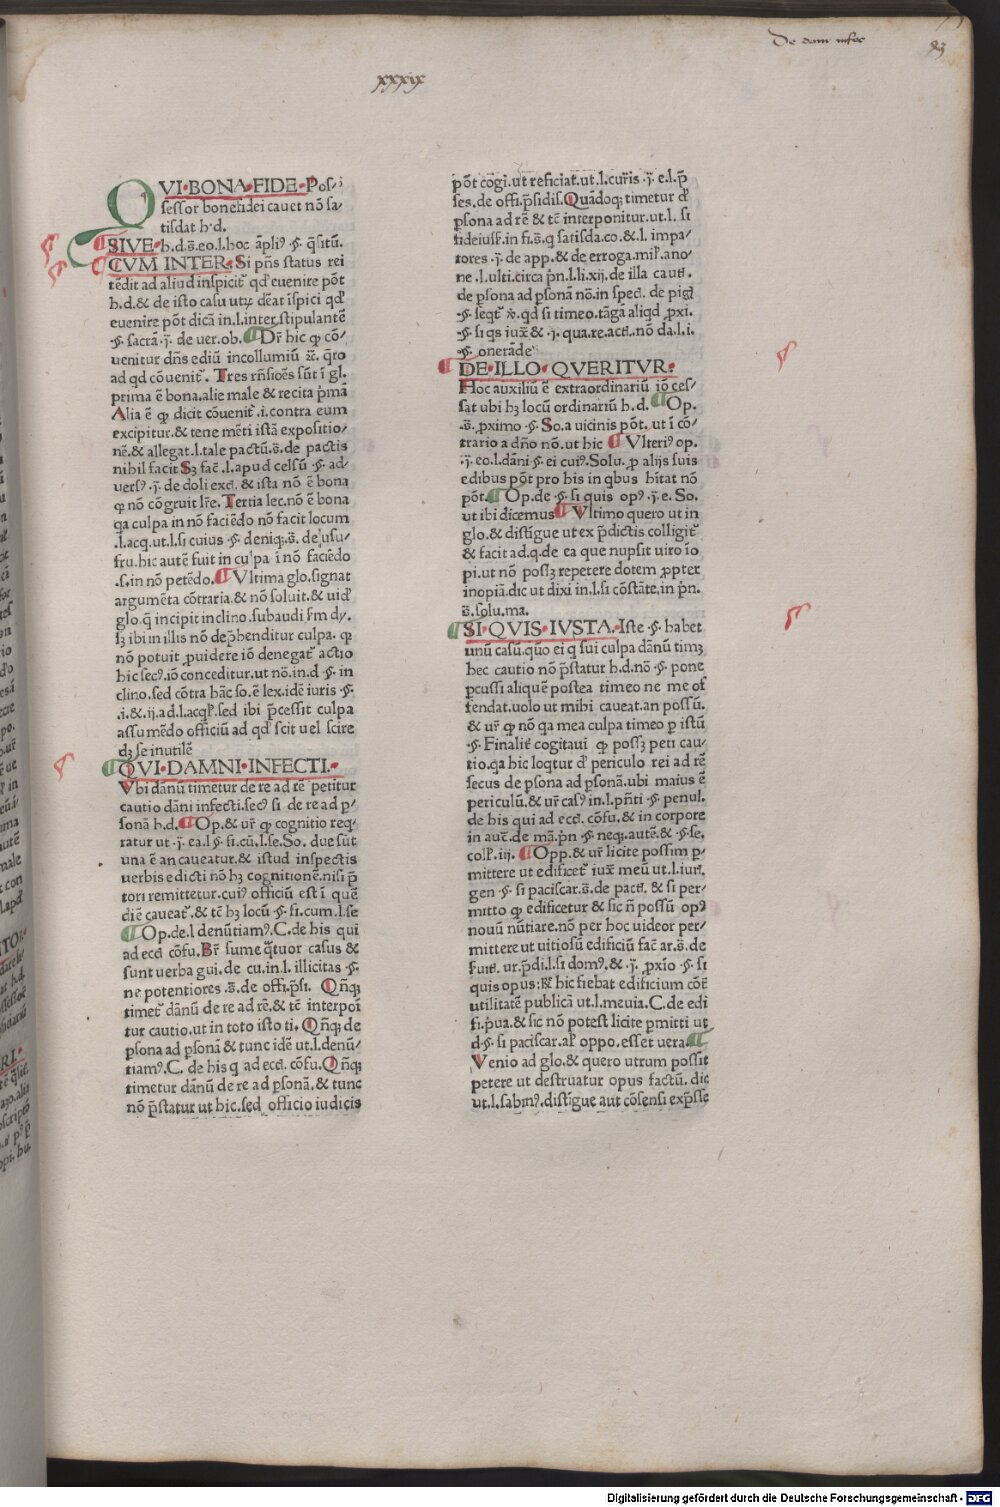 De dam infec
93
xxxix
QVI·BONA·FIDE·Pos⸗
sessor bonefidei cauet nō sa⸗
tisdat h·d.
SIVE·h.d.s̄.eo.l.hoc āpliꝰ ·§· q̄sitū.
CVM INTER·Si pn̄s status rei
tēdit ad aliud inspicit᷑ qd̕ euenire pōt
h.d.& de isto casu utꝝ dēat īspici qd̕
euenire pōt dicā in.l.inter stipulantē
·§· sacrā ·ij· de uer.ob. Dr̄ hic ꝙ cō⸗
uenitur dn̄s ediū incollumiū ⁊c̄. q̄ro
ad qd cōuenit᷑. Tres rn̄siōes sūt ī gl.
prima ē bona.alie male & recita p̄mā
Alia ē ꝙ dicit cōuenit᷑.i.contra eum
excipitur.& tene mēti istā expositio⸗
nē.& allegat.l.tale pactū.s̄.de pactis
nihil facit Sꝫ fac̄ .l.apud celsū ·§· ad⸗
uersꝰ ·ij· de doli exc̄. & ista nō ē bona
ꝙ nō cōgruit lr̄e. Tertia lec.nō ē bona
qa culpa in nō faciēdo nō facit locum
.l.acq.ut.l.si cuius ·§· deniqꝫ.s̄. de usu⸗
fru.hic autē fuit in culpa ī nō faciēdo
.s.in nō petēdo. Vltima glo.signat
argumēta cōtraria.& nō soluit.& uid̕
glo.q̄ incipit inclino.subaudi s̄m dy.
sꝫ ibi in illis nō dep̄henditur culpa. ꝙ
nō potuit ꝓuidere iō denegat᷑ actio
hic secꝰ.iō conceditur.ut nō.in.d ·§· in
clino.sed cōtra hāc so.ē lex.idē iuris ·§·
.i.& ij.ad.l.acql̕.sed ibi p̄cessit culpa
assumēdo officiū ad qd̕ scit uel scire
dꝫ se inutilē
QVI·DAMNI·INFECTI.·
Vbi dānū timetur de re ad rē petitur
cautio dāni infecti.secꝰ si de re ad p⸗
sonā h.d. Op.& ur̄ ꝙ cognitio req⸗
ratur ut ·ij· ea.l ·§· si.cū.l.se.So. due sūt
una ē an caueatur.& istud inspectis
uerbis edicti nō hꝫ cognitionē.nisi p̄
tori remittetur.cuiꝰ officiū est ī quē
diē caueat᷑.& tē hꝫ locū ·§· si.cum.l.se
Op.de.l denūtiamꝰ.C.de his qui
ad ecc̄ cōfu. Br̄ sume q̄tuor casus &
sunt uerba gui.de cu.in.l. illicitas ·§·
ne potentiores .s̄.de offi.p̄si. Qn̄qꝫ
timet᷑ dānū de re ad rē.& tē interpoī
tur cautio.ut in toto isto ti. Qn̄qꝫ de
p̄sona ad p̄sonā & tunc idē ut.l.denū⸗
tiamꝰ.C. de his q ad ecc̄. cōfu. Qn̄qꝫ
timetur dānū de re ad p̄sonā.& tunc
nō p̄statur ut hic.sed officio iudicis
pōt cogi.ut reficiat.ut.l.cur̄is ·ij· e.l.p̄
ses.de offi.p̄sidis. Quādoqꝫ timetur d̕
p̄sona ad rē & tē interponitur.ut.l. si
fideiuss̄.in fi.s̄.q satisda.co.& .l. impa⸗
tores ·ij· de app.& de erroga.mil̕.ano⸗
ne .l.ulti.circa p̄n.l.li.xij.de illa cauti.
de p̄sona ad p̄sonā nō.in spec̄l. de pig̕
·§· seqt᷑ ꝟ̇. qd̕ si timeo.tāgā aliqd ꝓxi.
·§· si qs iuxᷓ & ·ij· qua.re.acti..nō da.l.i.
·§· onerāde
DE·ILLO·QVERITVR·
Hoc auxiliū ē extraordinariū iō ces⸗
sat ubi hꝫ locū ordinariū h.d. Op.
.s̄. ꝓximo ·§· So.a uicinis pōt.ut ī cō⸗
trario a dn̄o nō.ut hic Vlteriꝰ op.
·ij·eo.l.dāni ·§· ei cuiꝰ.Solu. ꝓ alijs suis
edibus pōt pro his in qbus hītat nō
pōt. Op.de ·§· si quis opꝰ ·ij·e. So.
ut ibi dicemus Vltimo quero ut in
glo.& distīgue ut ex p̄dictis colligit᷑
& facit ad.q.de ea que nupsit uiro īo
pi.ut nō possꝫ repetere dotem ꝓpter
inopiā.dic ut dixi in.l.si cōstāte.in p̄n.
s̄.solu.ma.
SI·QVIS·IVSTA·Iste ·§· habet
unū casū.quo ei q sui culpa dānū timꝫ
hec cautio nō p̄statur h.d.nō ·§· pone
p̄cussi aliquē postea timeo ne me of
fendat.uolo ut mihi caueat.an possū.
& ur̄ ꝙ nō qa mea culpa timeo p istū
·§· Finalit᷑ cogitaui ꝙ possꝫ peti cau⸗
tio.qa hic loqtur d̕ periculo rei ad rē
secus de p̄sona ad p̄sonā.ubi maius ē
periculū.& ur̄ casꝰ in.l.p̄nti ·§· penul.
de his qui ad ecc̄. cōfu.& in corpore
in aut̄.de mā.p̄n ·§· neqꝫ.autē.& ·§·se.
col̕. iij. Opp.& ur̄ licite possim p⸗
mittere ut edificet᷑ iuxᷓ meū ut.l.iur̄.
gen ·§· si paciscar.s̄.de pact̄. & si per⸗
mitto ꝙ edificetur & sic n̄ possū opꝰ
nouū nūtiare.nō per hoc uideor per⸗
mittere ut uitiosū edificiū fac̄ ar.s̄.de
s̄uit᷑. ur.p̄di.l.si domꝰ.& ·ij· ꝓxīo ·§· si
quis opus: R̄ hic fiebat edificium cōt̄
utilitatē publicā ut.l.meuia.C.de edi
fi.p̄ua.& sic nō potest licite p̄mitti ut
d ·§· si paciscar.al̕ oppo.esset uera
Venio ad glo.& quero utrum possit
petere ut destruatur opus factū. dic
ut.l.sabinꝰ.distīgue aut cōsensi exp̄sse
Digitalisierung gefördert durch die Deutsche Forschungsgemeinschaft · DFG